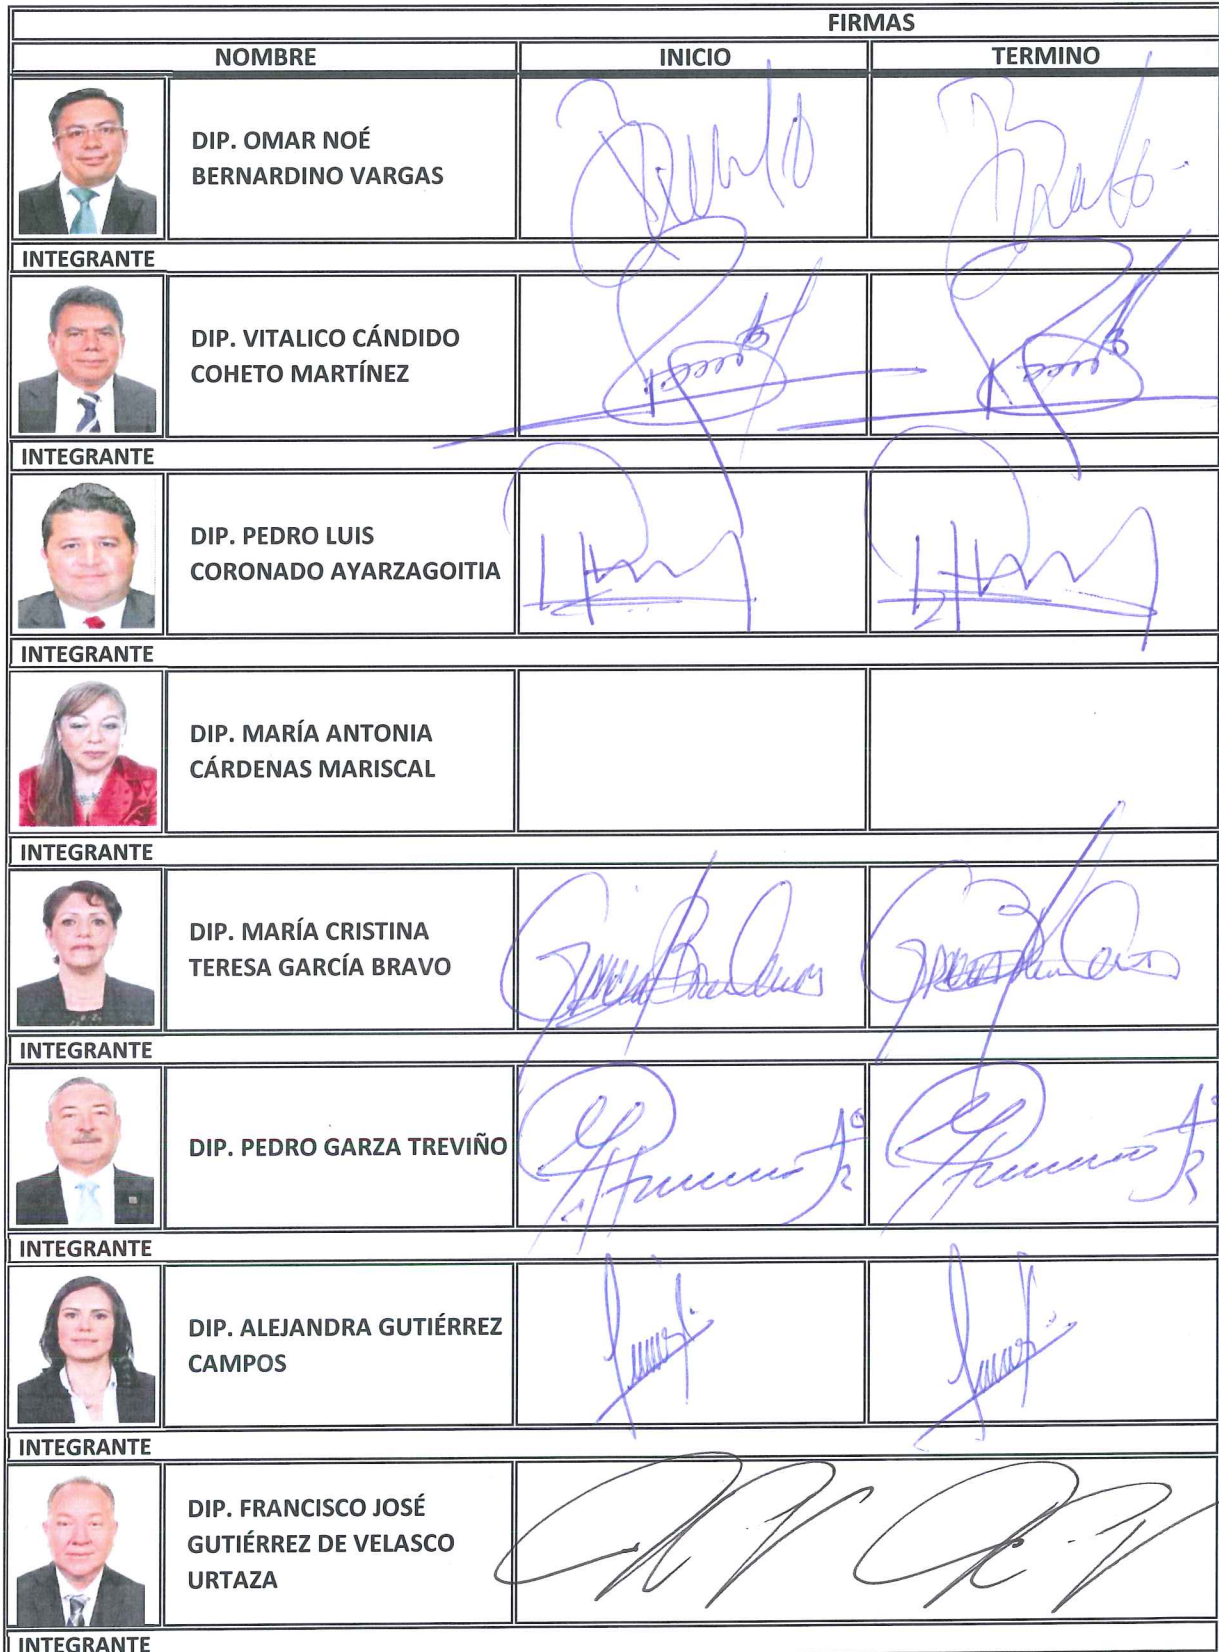 FIRMAS
NOMBRE INICIO TERMINO
DIP. OMAR NOÉ
BERNARDINO VARGAS
INTEGRANTE
DIP. VITALICO CÁNDIDO
COHETO MARTÍNEZ
INTEGRANTE
DIP. PEDRO LUIS
CORONADO AYARZAGOITIA
INTEGRANTE
DIP. MARÍA ANTONIA
CÁRDENAS MARISCAL
INTEGRANTE
DIP. MARÍA CRISTINA
TERESA GARCÍA BRAVO
INTEGRANTE
DIP. PEDRO GARZA TREVIÑO
INTEGRANTE
DIP. ALEJANDRA GUTIÉRREZ
CAMPOS
INTEGRANTE
DIP. FRANCISCO JOSÉ
GUTIÉRREZ DE VELASCO
URTAZA
INTEGRANTE